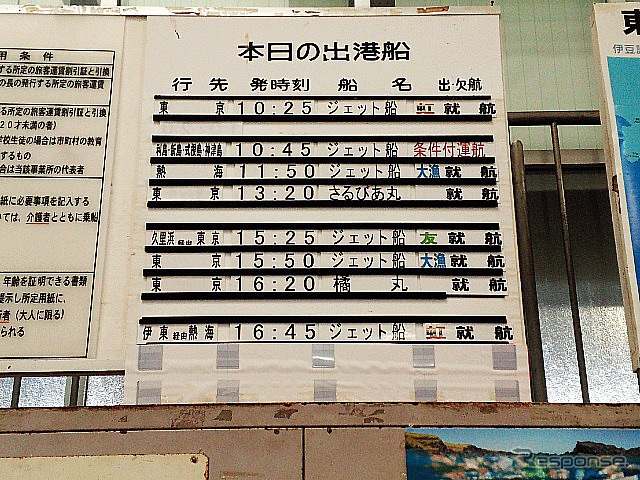 本日の出港船
行先 発時刻 船名 出次航
東京 10:25 ジェット船 虹 就航
利島・新島・式根島・神津島 10:45 ジェット船 条件付運航
熱海 11:50 ジェット船 大漁 就航
東京 13:20 さるびあ丸 就航
久里浜 経由 東京 15:25 ジェット船 友 就航
東京 15:50 ジェット船 大漁 就航
東京 16:20 橘丸 就航
伊東 経由 熱海 16:45 ジェット船 虹 就航
用条件
する所定の旅客運賃割引証と引換
の長の発行する所定の旅客運賃
る所定の旅客運賃割引証と引換
20才未満の者)
学校生徒の場合は市町村の教育
するもの
合は当該事業所の代表者
紙に必要事項を記入する
いては、介護者とともに乗船
年齢を証明できる書類
提示し所定用紙に、
者(大人に限る)
られる
東
伊豆
Response.